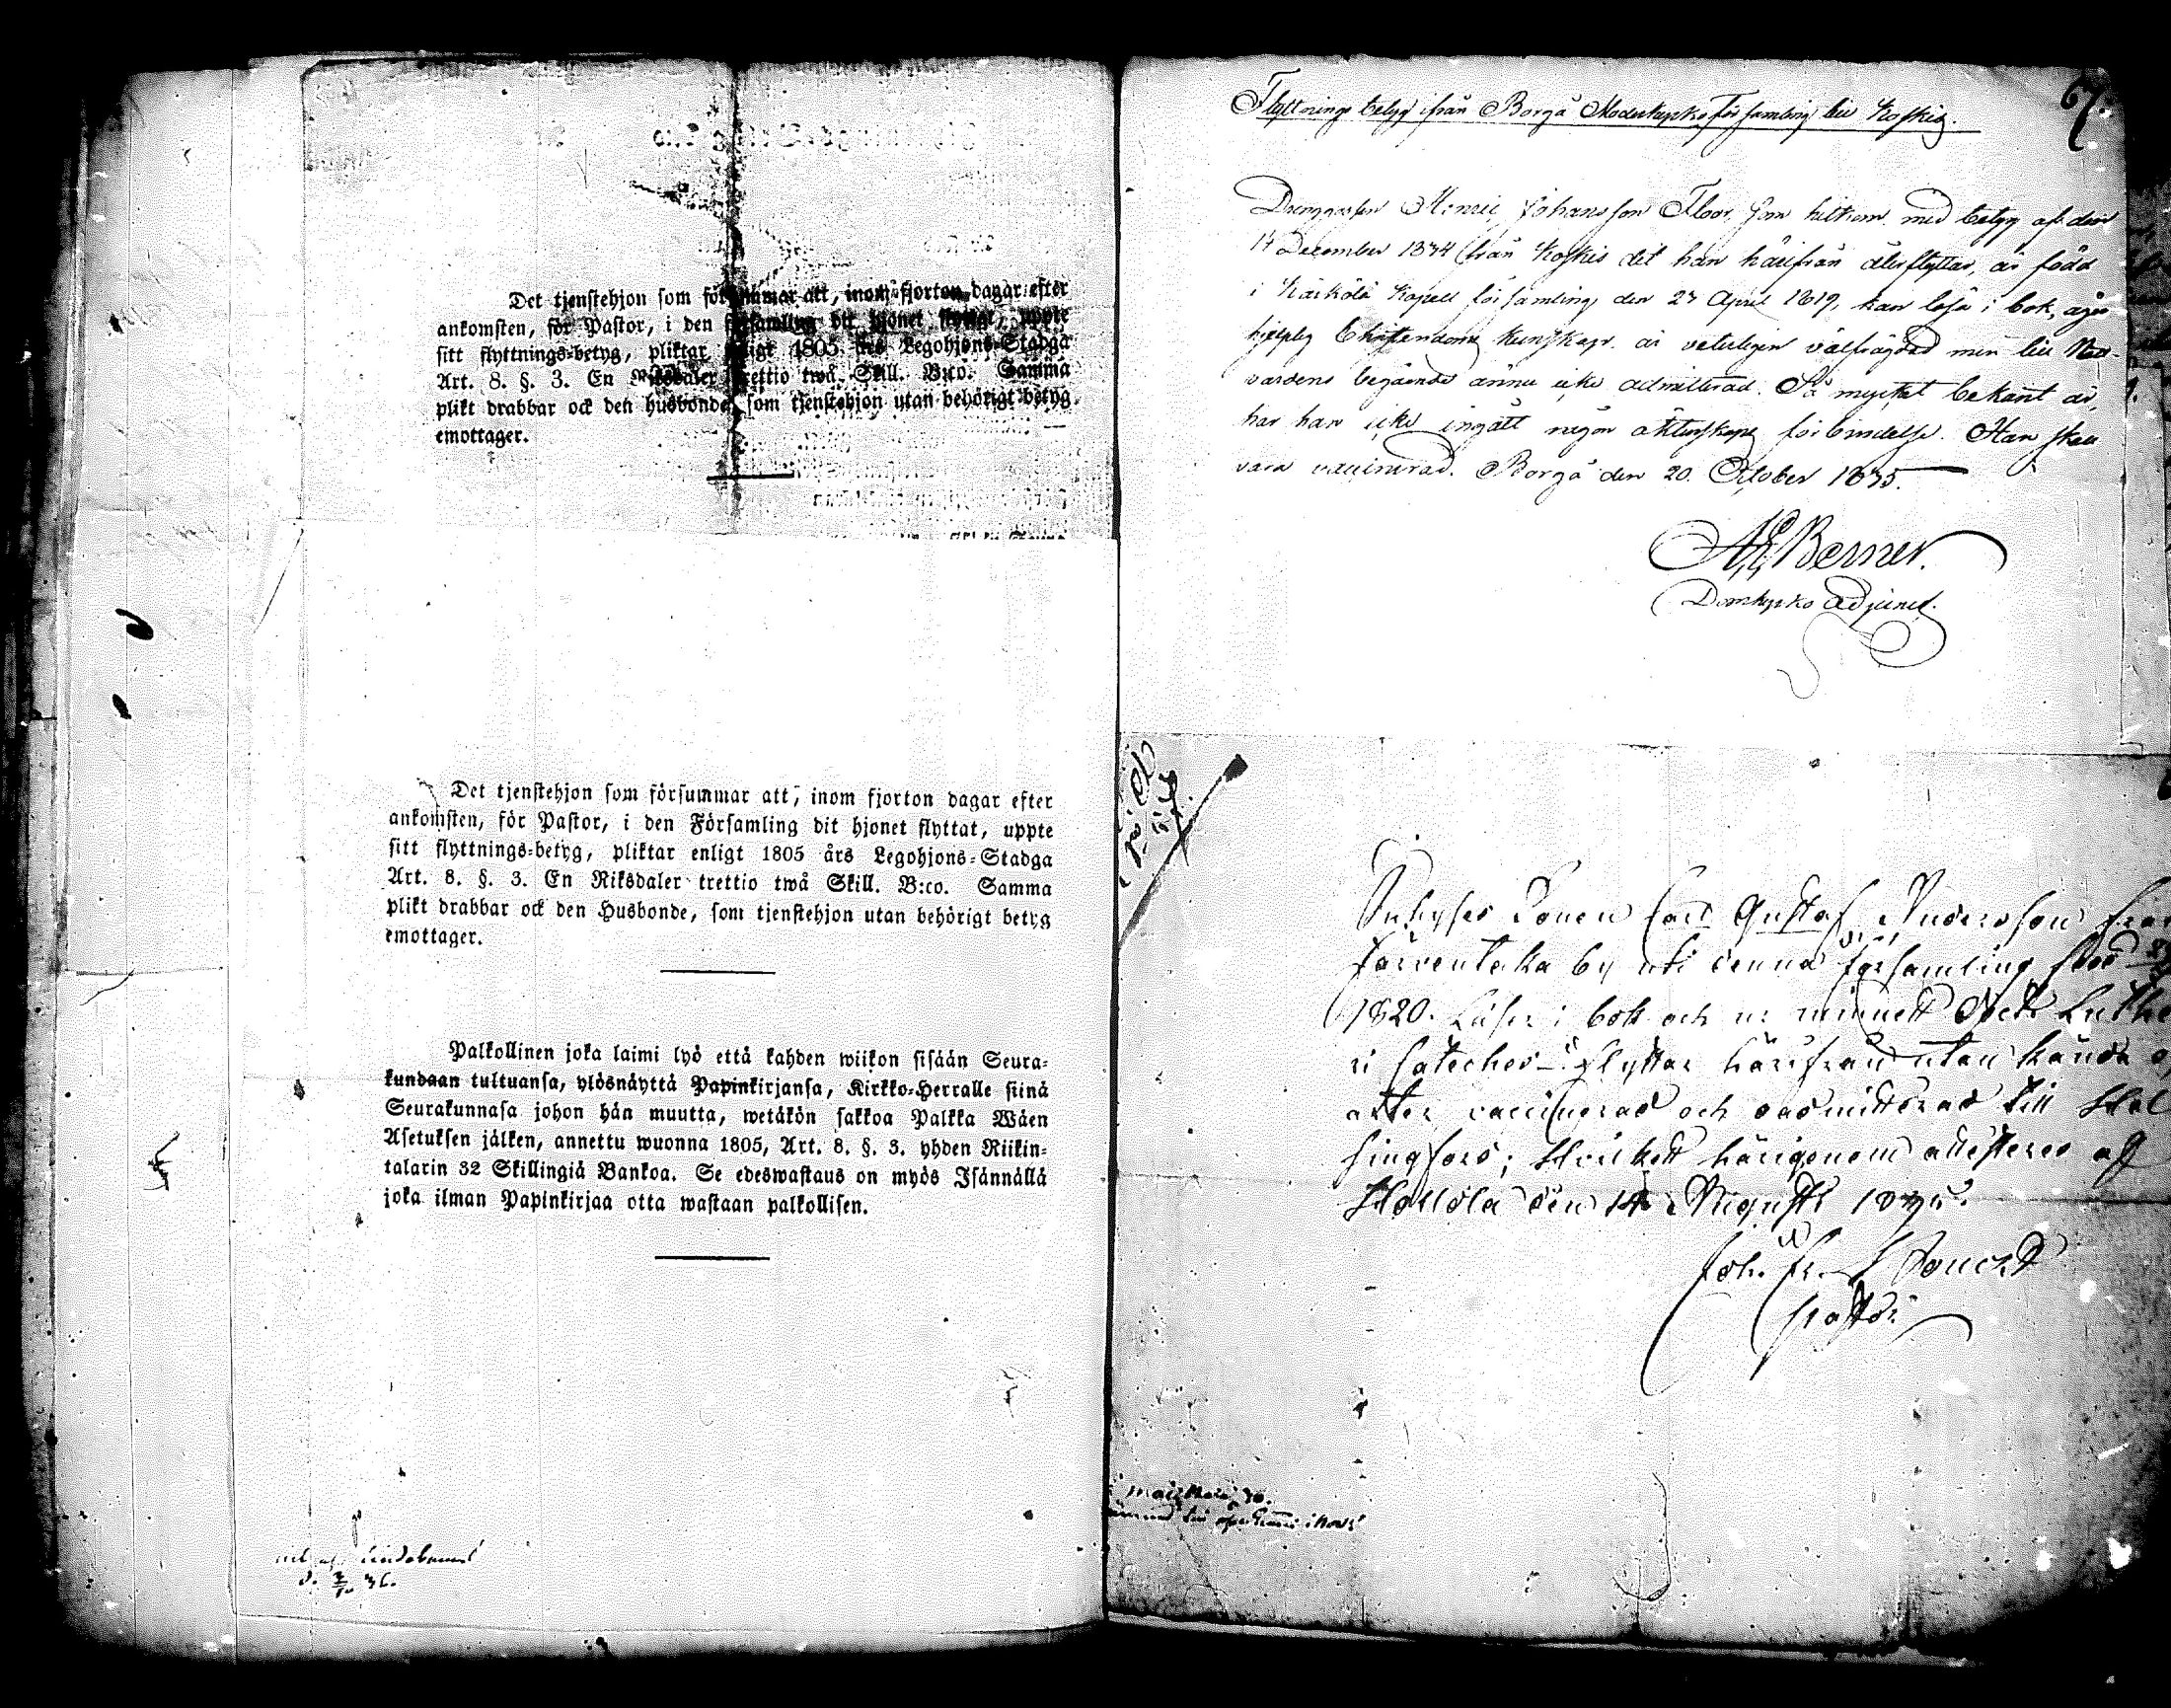 Det tjenstehjon som försummar att, inom fjorton dagar efter
ankomsten, för Pastor, i den Församling dit hjonet flyttat, uppte
sitt flyttnings-betyg, pliktar enligt 1805 års Legohjons-Stadga
Art. 8. §. 3. En Riksdaler trettio twå Skill. B:co. Samma
plikt drabbar ock den husbonde, som tjenstehjon utan behörigt betyg
emottager.
Det tjenstehjon som försummar att, inom fjorton dagar efter
ankomsten, för Pastor, i den Församling dit hjonet flyttat, uppte
sitt flyttnings-betyg, pliktar enligt 1805 års Legohjons-Stadga
Art. 8. §. 3. En Riksdaler trettio twå Skill. B:co. Samma
plikt drabbar ock den Husbonde, som tjenstehjon utan behörigt betyg
emottager.
Palkollinen joka laimi lyö että kahden wiikon sisään Seura-
kundaan tultuansa, ylösnäyttä Papinkirjansa, Kirkko-Herralle siinä
Seurakunnasa johon hän muutta, wetäkön sakkoa Palkka Wäen
Asetuksen jälken, annettu wuonna 1805, Art. 8. §. 3. yhden Riikin-
talarin 32 Skillingiä Bankoa. Se edeswastaus on myös Isännällä
joka ilman Papinkirjaa otta wastaan palkollisen.
36.
67.
Flyttnings betyg ifrån Borgå Moderkyrko Församling till Koskis.
Drenggossen Henric Johansson Floor, som hitkom med betyg af den
14 December 1834 från Koskis dit han härifrån återflyttar, är född
i Kärkölä Kapell församling den 27 April 1819, kan läsa i bok, äger
hjelplig Christendoms kunskap, är veterligen välfrägdad men till Natt-
vardens begående ännu icke admitterad. Så mycket bekant är,
har han icke ingått någon äktenskaps förbindelse. Han skall
vara vaccinerad. Borgå den 20. October 1835.
Berner.
Domkyrko Adjunct.
Inhyses Sonen Carl Gustaf Andersson från
Järventaka by uti denna församling född
1820. Läser i bok och ur minnet Doct. Luthe
ri Cateches. flyttar härifrån utan kända
atter vaccinerad och oadmitterad till Hel
singfors; Hvilket härigenom attesteras af
Hollola den 14 Augusti 1835.
Joh. Fr.
pastor.